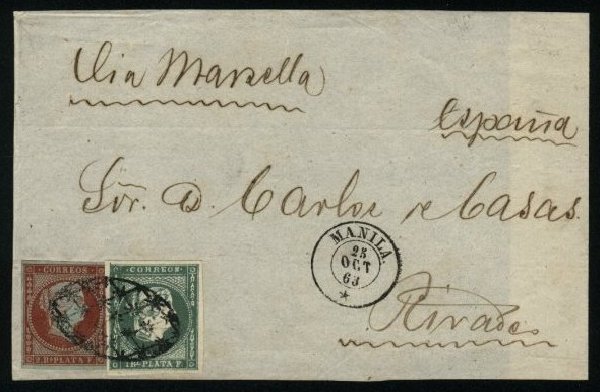 Via Marsella
España
Sor. D. Carlos de Casas.
MANILA.
23
OCT
63
Rivadeo
CORREOS
2 Rs PLATA F.
CORREOS
1Rl PLATA F.